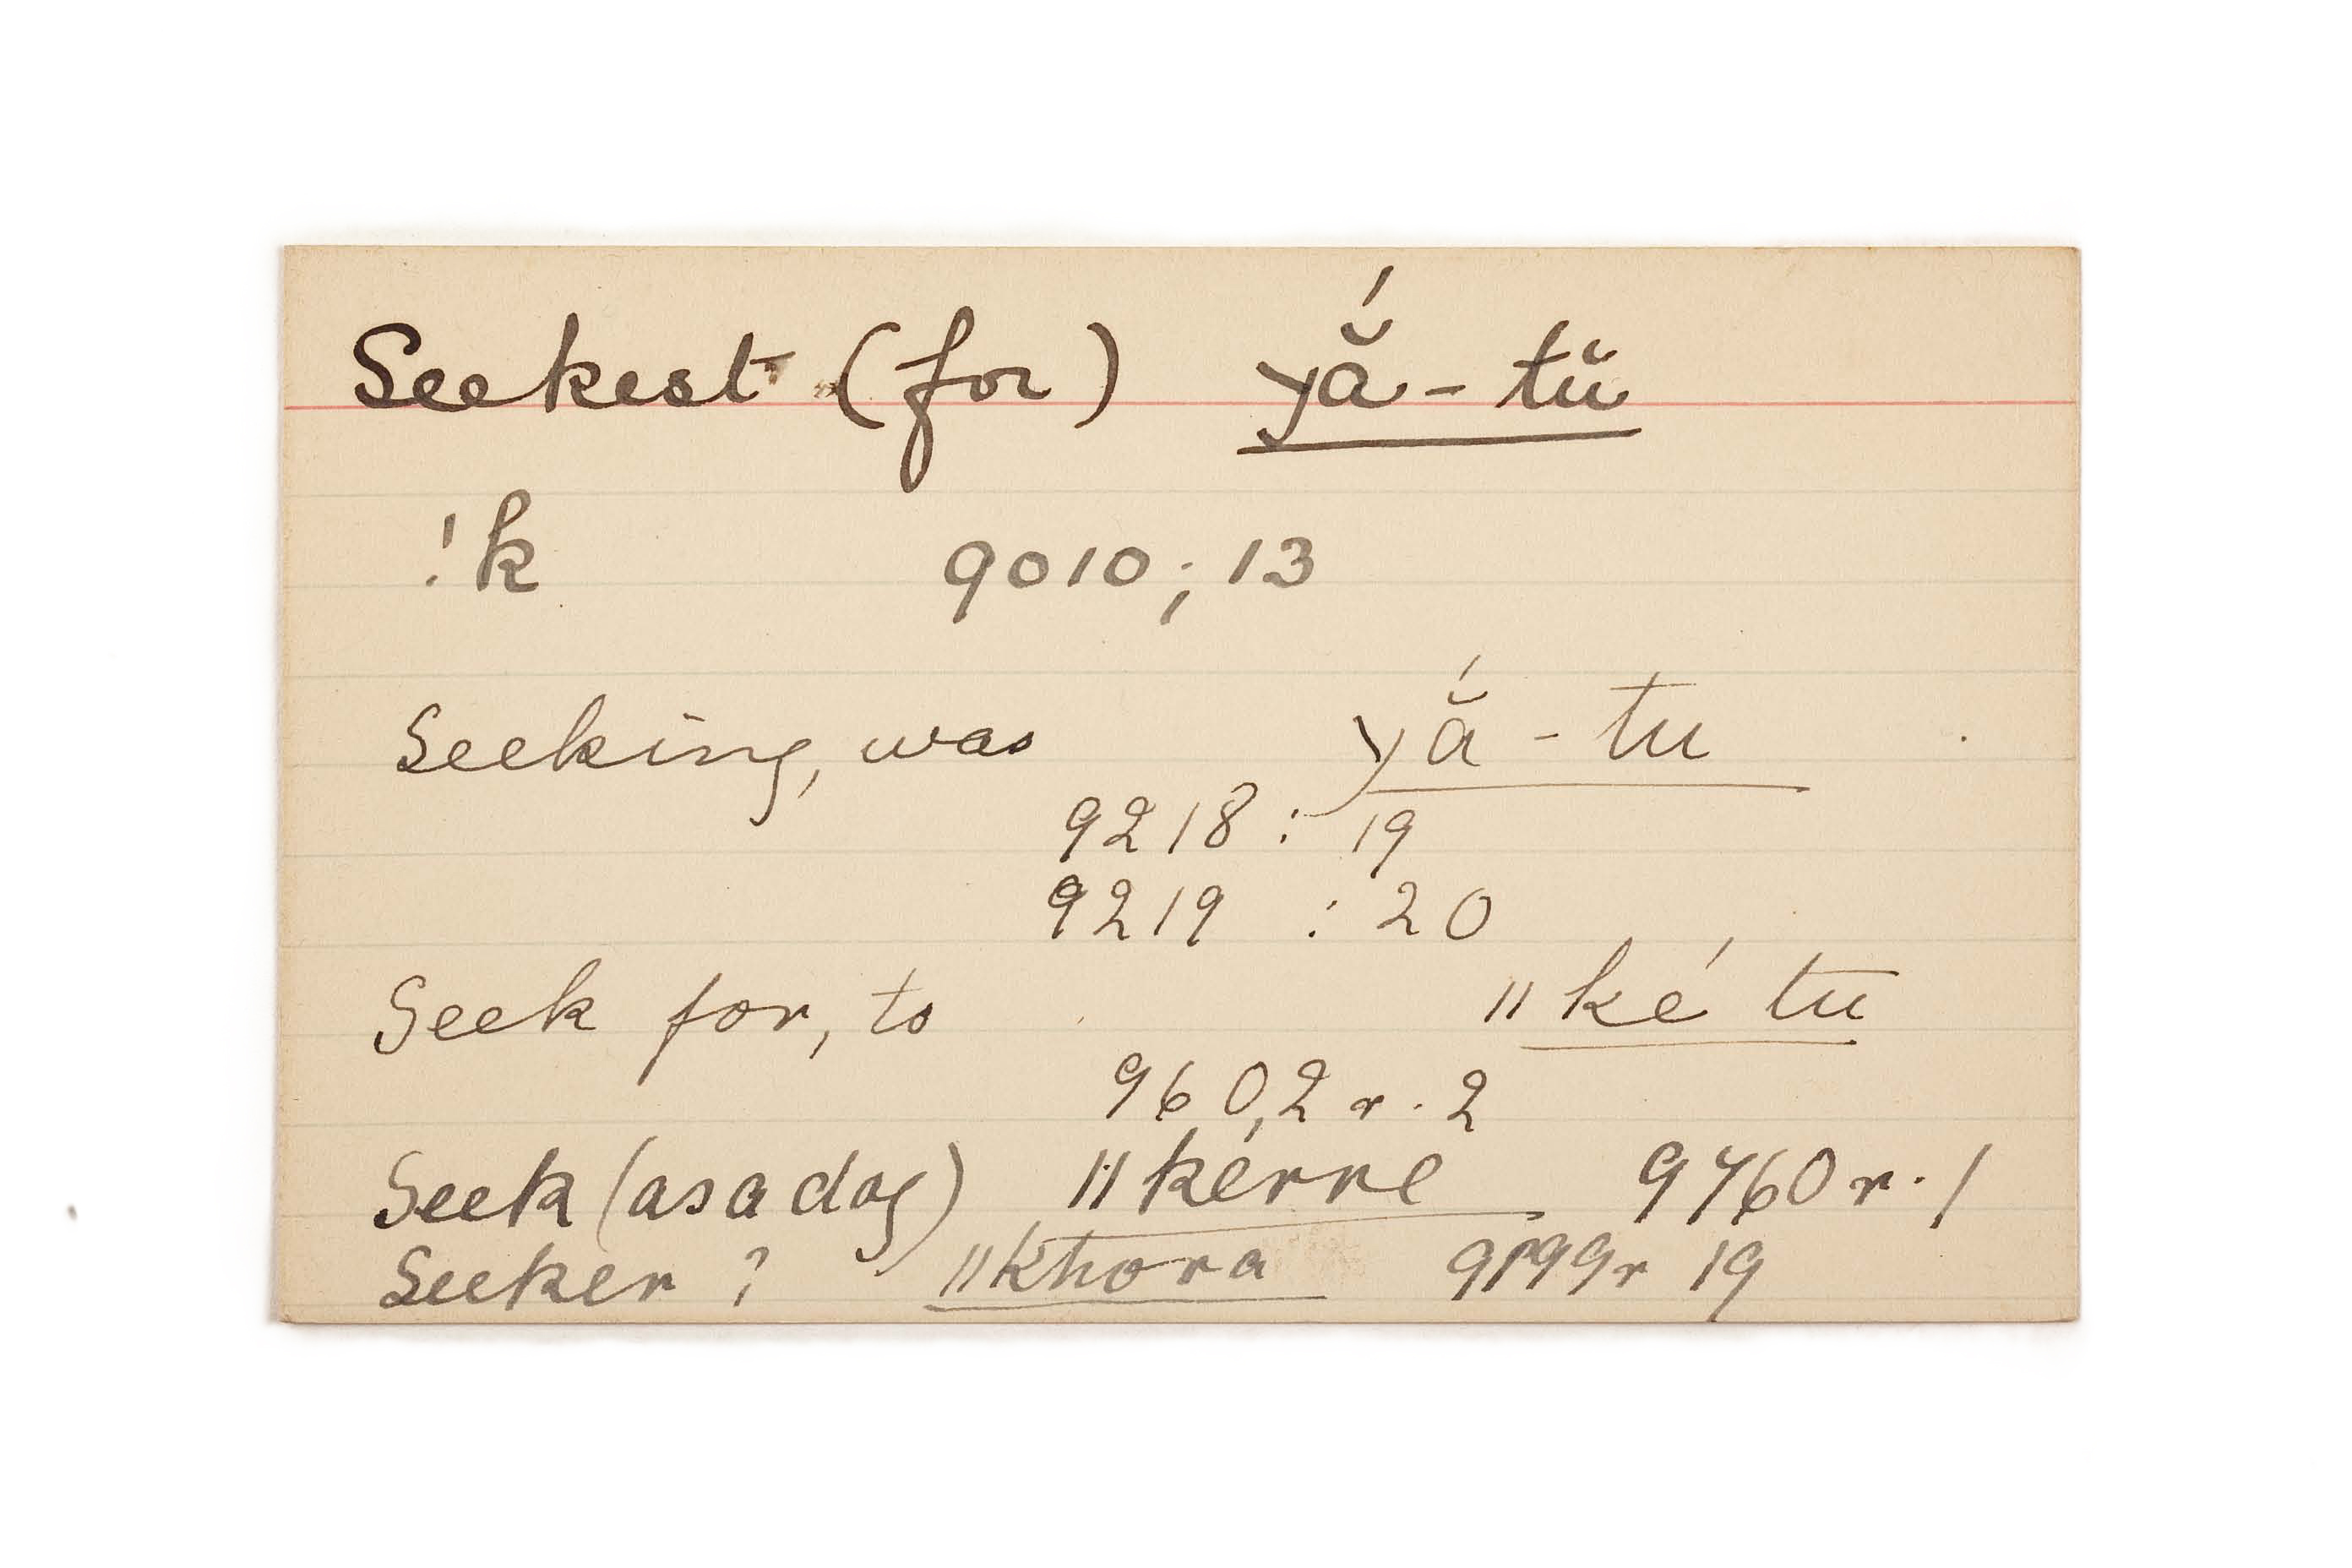 Seekest (for) yắ-tŭ
!k 9010; 13
Seeking, was yắ-tu
9218 : 19
9219 : 20
Seek for, to ǁké tu
9602 r. 2
Seek (as a dog) ǁkérre 9760 r. 1
Seeker ? ǁkhora r 19